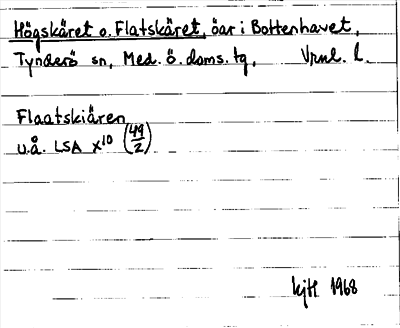 Högskäret o. Flatskäret, öar i Bottenhavet,
Tynderö sn, Med. ö. doms. tg, Vrnl. l.
Flaatskiären
u.å. LSA X¹⁰ (49/2)
kjH 1968